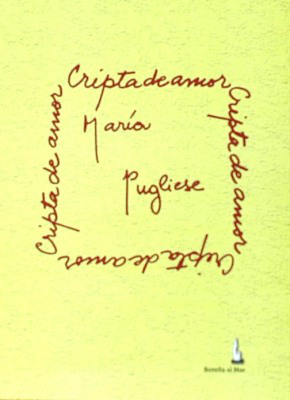 Cripta de amor
María
Pugliese
Cripta de amor
Cripta de amor
Cripta de amor
Botella al Mar